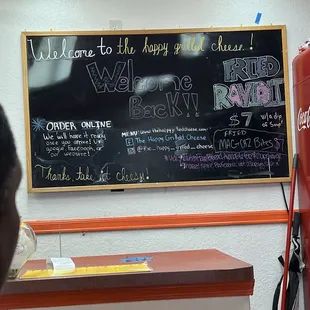 Welcome to the happy grilled cheese!
Welcome
Back!!
FRIED
RAVIOLI
$7 w/a dip
of sauce!
ORDER ONLINE
We will have it ready
once you arrive! Via
google, facebook, or
our website!
MENU: www.thehappygrilledcheese.com
The Happy Grilled Cheese
@the_happy_grilled_cheese
FRIED
MAC-
Thanks, take it cheesy!
Coca